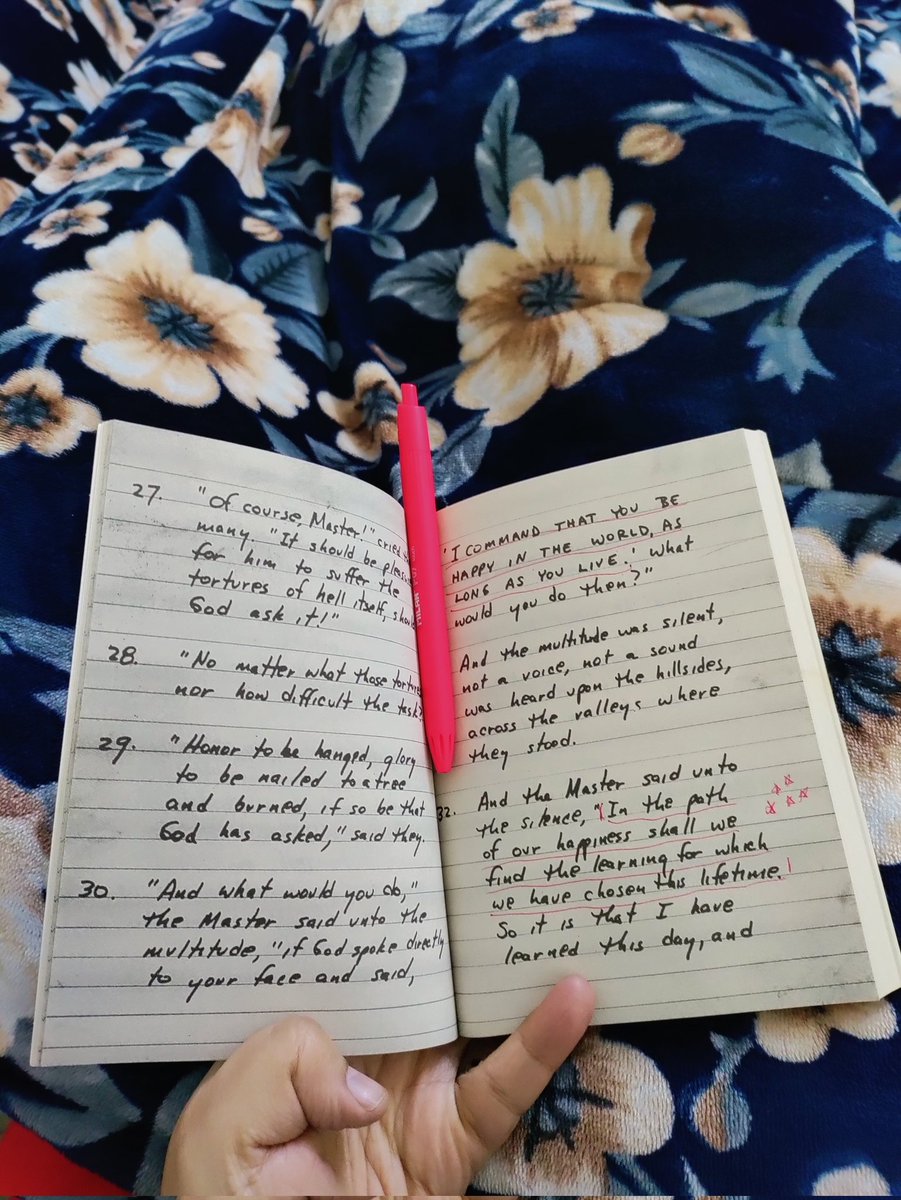 27. "Of course, Master!" cried
many. "It should be
for him to suffer the
tortures of hell itself,
God ask it!"
28. "No matter what those
nor how difficult the task."
29. "Honor to be hanged, glory
to be nailed to a tree
and burned, if so be that
God has asked," said they.
30. "And what would you do,"
the Master said unto the
multitude, "if God spoke directly
to your face and said,
'I COMMAND THAT YOU BE
HAPPY IN THE WORLD, AS
LONG AS YOU LIVE.' What
would you do then?"
And the multitude was silent,
not a voice, not a sound
was heard upon the hillsides,
across the valleys where
they stood.
32. And the Master said unto
the silence, "In the path
of our happiness shall we
find the learning for which
we have chosen this lifetime.
So it is that I have
learned this day, and
MILAN